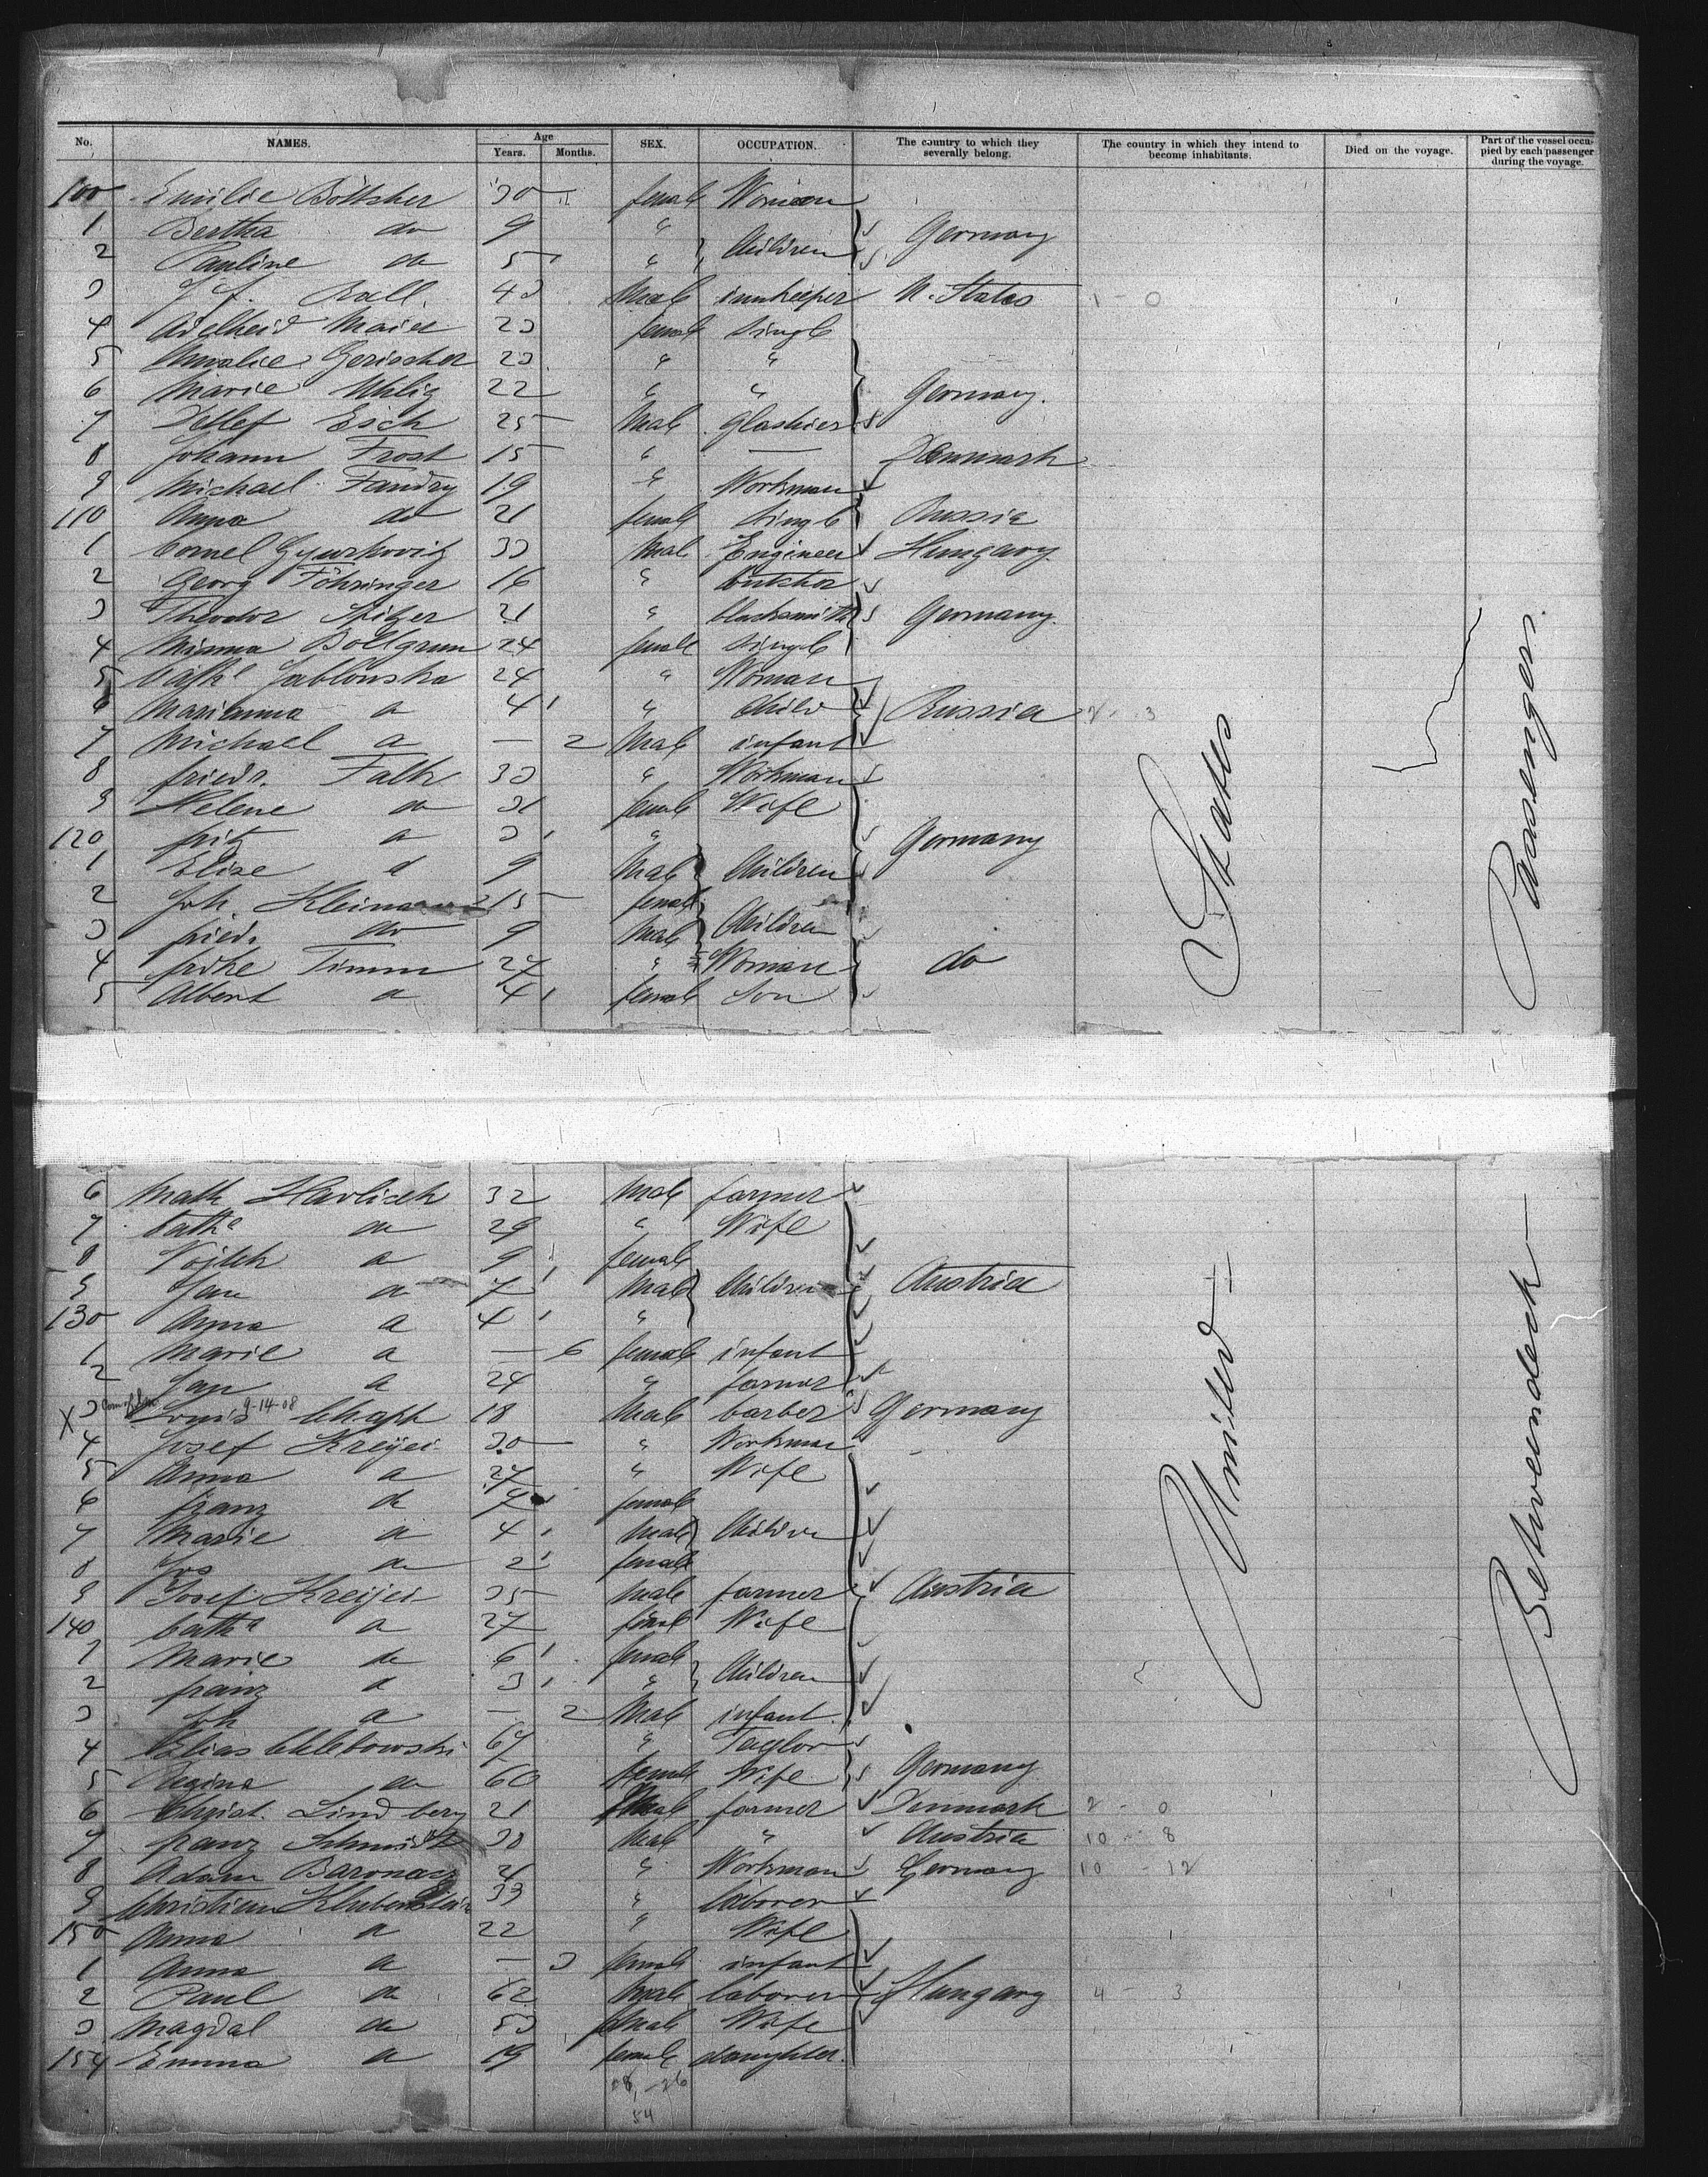 No. NAMES. Age Years. Months. SEX. OCCUPATION. The country to which they severally belong. The country in which they intend to become inhabitants. Died on the voyage. Part of the vessel occupied by each passenger during the voyage.
100 Emilie Böttcher 30 female Woman
1 Bertha do 9 " Children Germany
2 Pauline do 5 "
3 Ball 43 Male innkeeper U. States 1 - 0
4 Adelheid Maier 23 female single
5 Amalie Gerischer 23 " "
6 Marie Uhlig 22 " " Germany.
7 Detlef Esch 25 Male
8 Johann Frost 15 " — Denmark
9 Michael Fandry 19 " Workman
110 Anna do 21 female Single Russia
1 Cornel Gyurkovitz 33 Male Engineer Hungary
2 Georg Föhringer 16 " butcher
3 Theodor Spitzer 21 " blacksmith Germany.
4 Minna Bollgrum 24 female single
5 Cath. Jablonska 24 " Woman
6 Marianna a 4 " Child Russia 2 - 3
7 Michael a — 2 Male infant
8 friedr. Falk 33 " Workman
9 Helene do 31 female Wife
120 fritz a 3 " Germany
1 Elise d 9 Male Children
2 Joh. 15 female
3 friedr. do 9 Male Children
4 Timm 27 " Woman do
5 Albert a 4 female Son
6 Math Havlicek 32 Male farmer
7 Cath.a do 29 " Wife
8 Vojtech a 9 female
9 Jan a 7 Male Children Austria
130 Anna a 4 "
1 Marie a — 6 female infant
2 Jan a 24 " farmer
X 3 Louis 9-14-08 18 Male barber Germany
4 Josef Kreijci 30 " Workman
5 Anna a 27 " Wife
6 franz do 7 female
7 Marie a 4 Male Children
8 Jos do 2 female
9 Josef Kreijci 35 Male farmer Austria
140 Cath.a a 27 female Wife
1 Marie do 6 female
2 franz d 3 " Children
3 Joh a — 2 Male infant
4 Elias Chlebowski 67 " Taylor
5 Regina do 60 female Wife Germany
6 Christ. Lindberg 21 Male farmer Denmark 2 - 0
7 franz Schmidt 30 Male " Austria 10 - 8
8 Adam 21 " Workman Germany 10 - 12
9 Christian 33 " laborer
150 Anna a 22 " Wife
1 Anna a — 3 female infant
2 Paul do 62 Male laborer Hungary 4 - 3
3 Magdal do 53 Male Wife
154 Emma a 19 female daughter.
54
United States
Betweendeck Passengers.